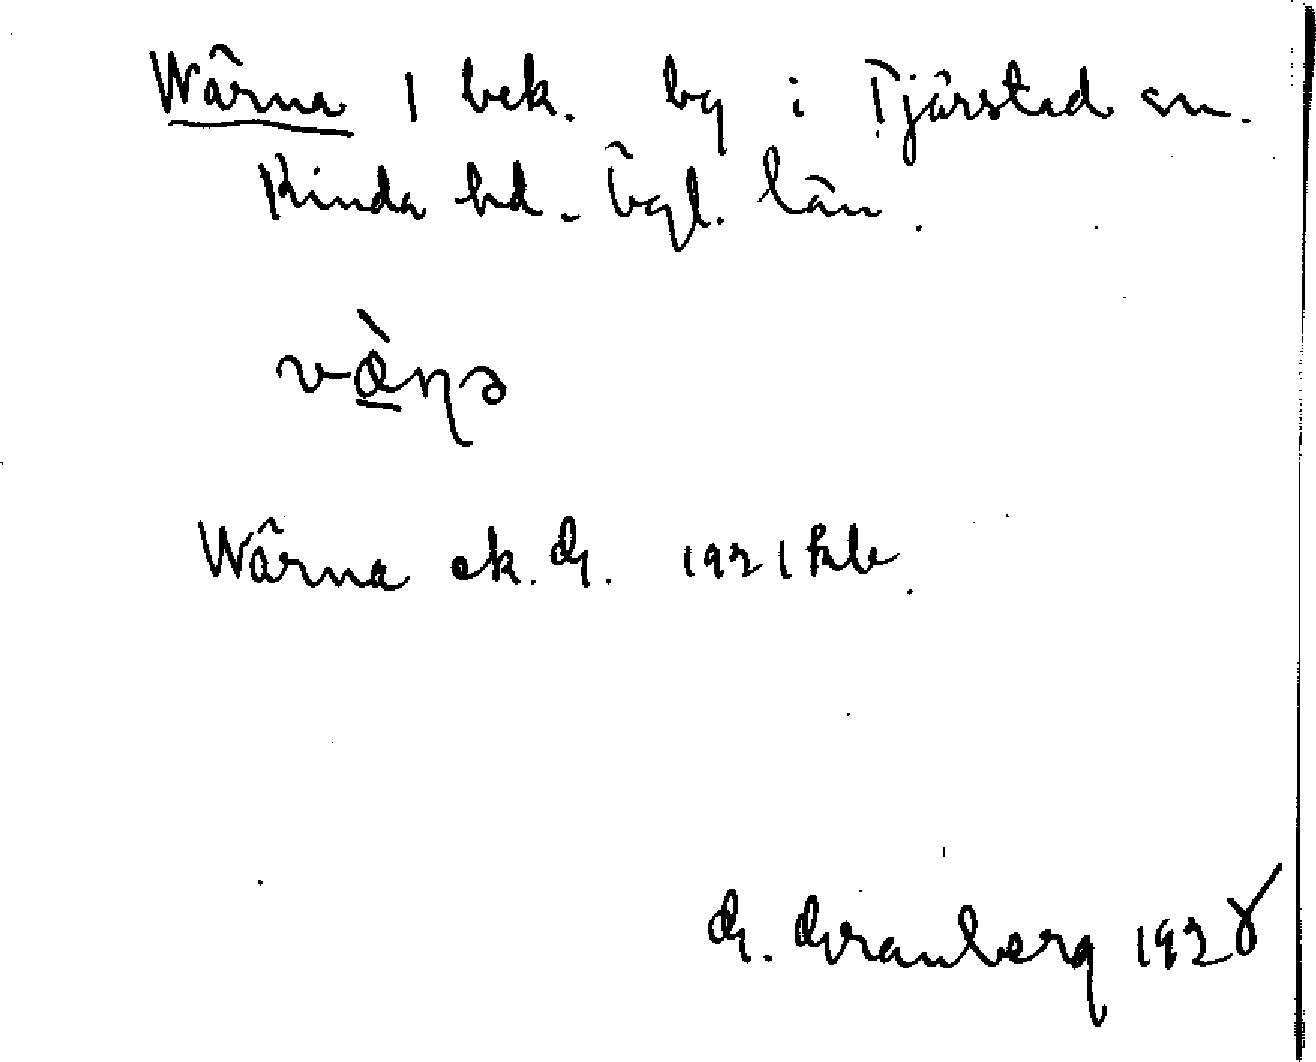 Wärna | bek. by i Tjärstad sn.
Kinda hd. Ögl. län.
Wärna ek. G. 1921 kbl.
G. Granberg 1928